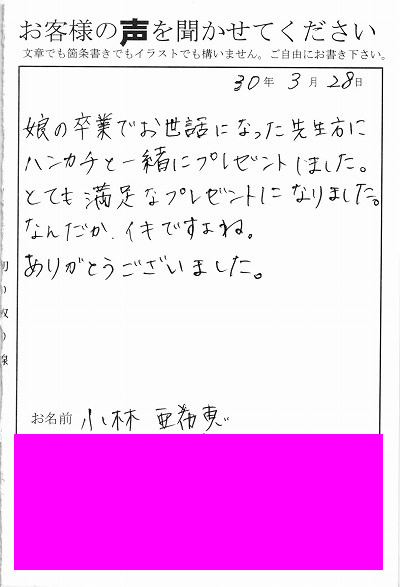 お客様の声を聞かせてください
文章でも箇条書きでもイラストでも構いません。ご自由にお書き下さい。
30年 3月 28日
娘の卒業でお世話になった先生方に
ハンカチと一緒にプレゼントしました。
とても満足なプレゼントになりました。
なんだか、イキですよね。
ありがとうございました。
お名前 小林 亜希恵